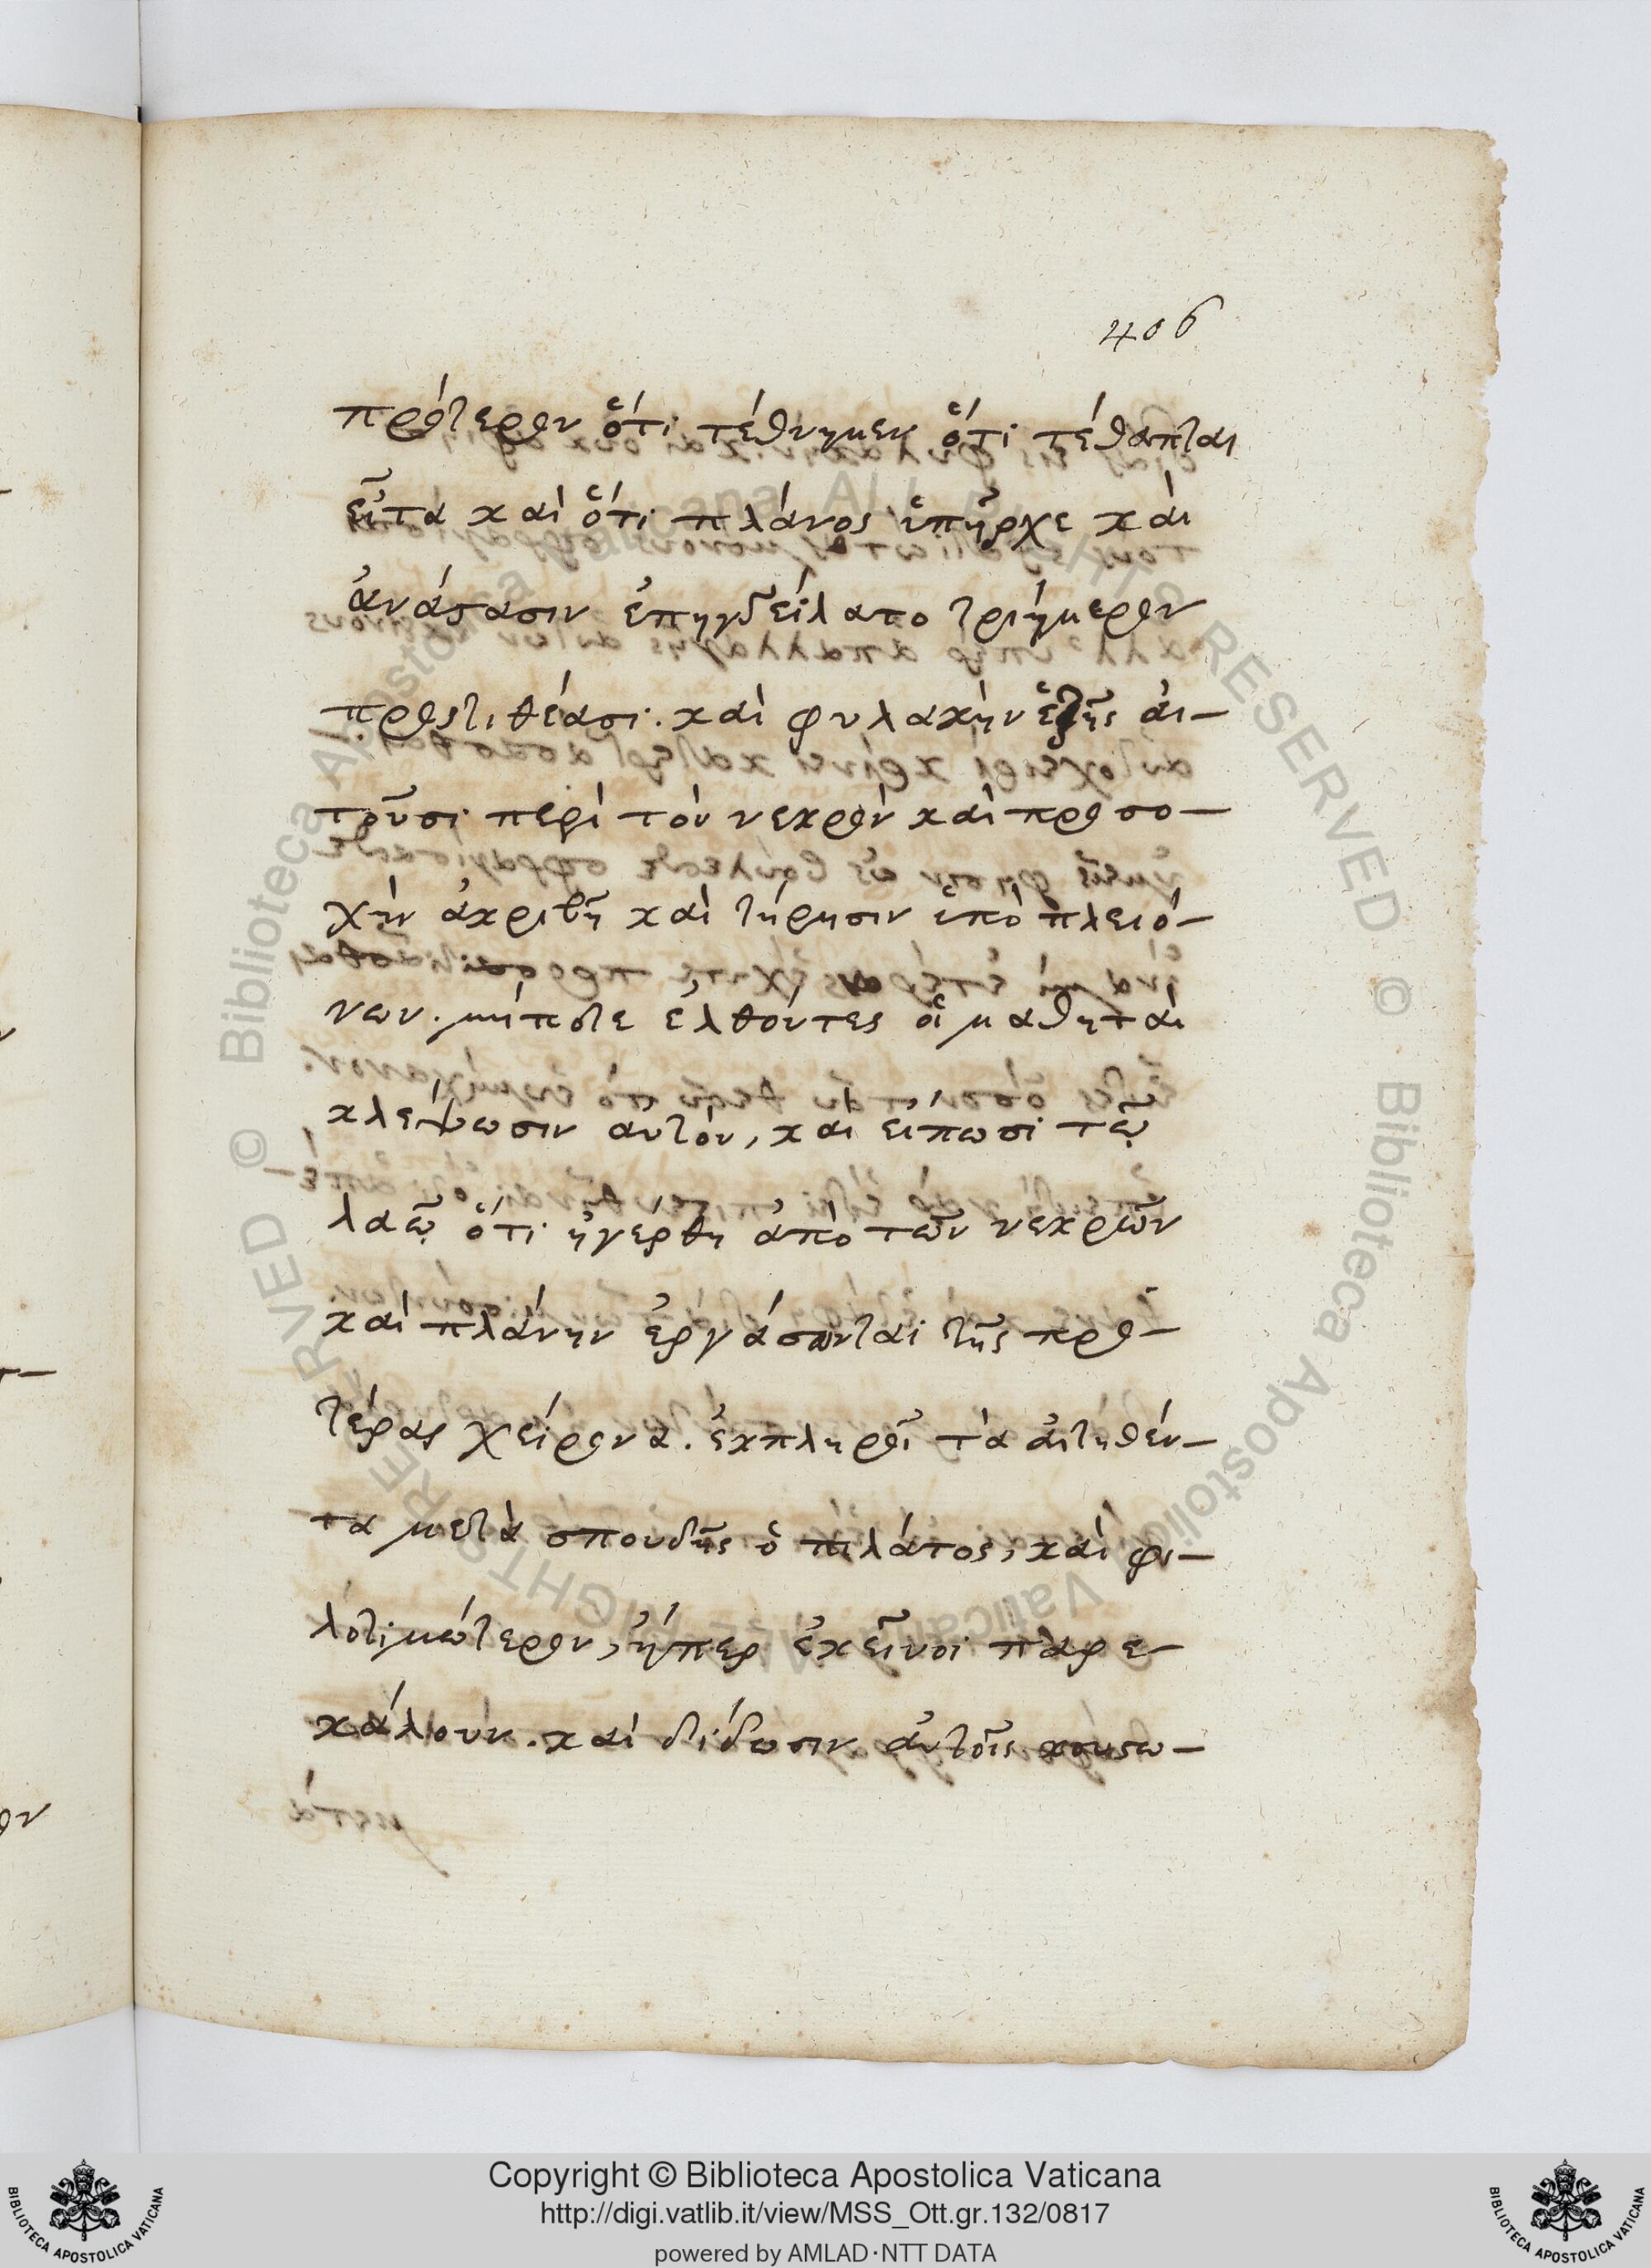 406
πρότερον ὅτι τέθνηκεν ὅτι τέθαπται
εἶτα καὶ ὅτι πλάνος ὑπῆρχε καὶ
ἀνάστασιν ἐπηγγείλατο τριήμερον
προστιθέασι. καὶ φυλακὴν ἑξῆς αἰ-
τοῦσι περὶ τὸν νεκρὸν καὶ προσο-
χὴν ἀκριβῆ καὶ τήρησιν ὑπὸ πλειό-
νων. μήποτε ἐλθόντες οἱ μαθηταὶ
κλέψωσιν αὐτὸν, καὶ εἴπωσι τῷ
λαῷ ὅτι ἠγέρθη ἀπὸ τῶν νεκρῶν
καὶ πλάνην ἐργάσωνται τῆς προ-
τέρας χείρονα. ἐκπληροῖ τὰ αἰτηθέν-
τα μετὰ σπουδῆς ὁ πιλάτος, καὶ φι-
λοτιμώτερον, ἤπερ ἐκεῖνοι παρε-
κάλουν. καὶ δίδωσιν αὐτοῖς κουστω-
Copyright © Biblioteca Apostolica Vaticana
http://digi.vatlib.it/view/MSS_Ott.gr.132/0817
powered by AMLAD·NTT DATA
BIBLIOTECA APOSTOLICA VATICANA
BIBLIOTECA APOSTOLICA VATICANA